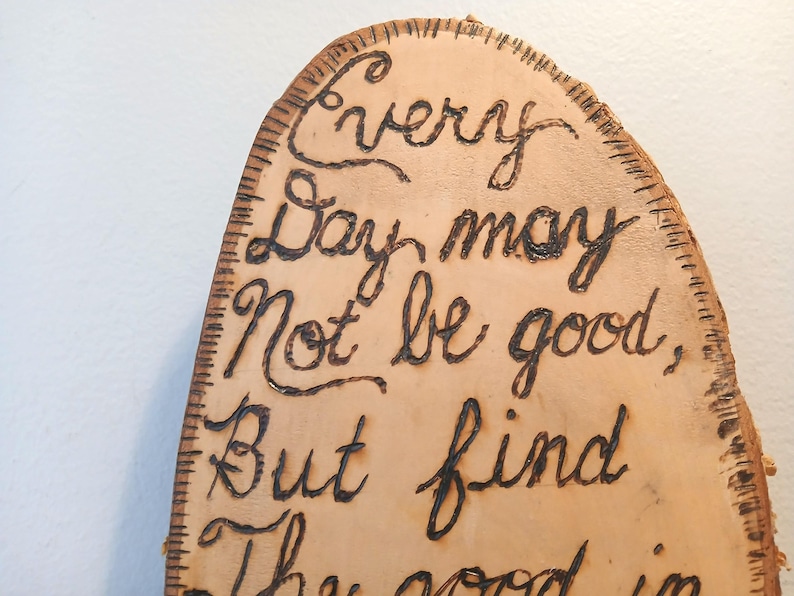 Every
Day may
Not be good,
But find
The good in